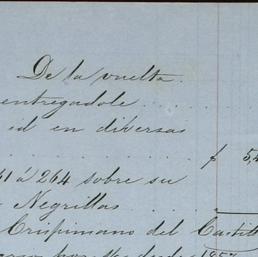 De la vuelta.
entregadole . . . . . .
id en diversas
. . . . . . . . $ 5,4
61 á 264 sobre su
Negrillas . . .
Crispiniano del Castill
desde 1857